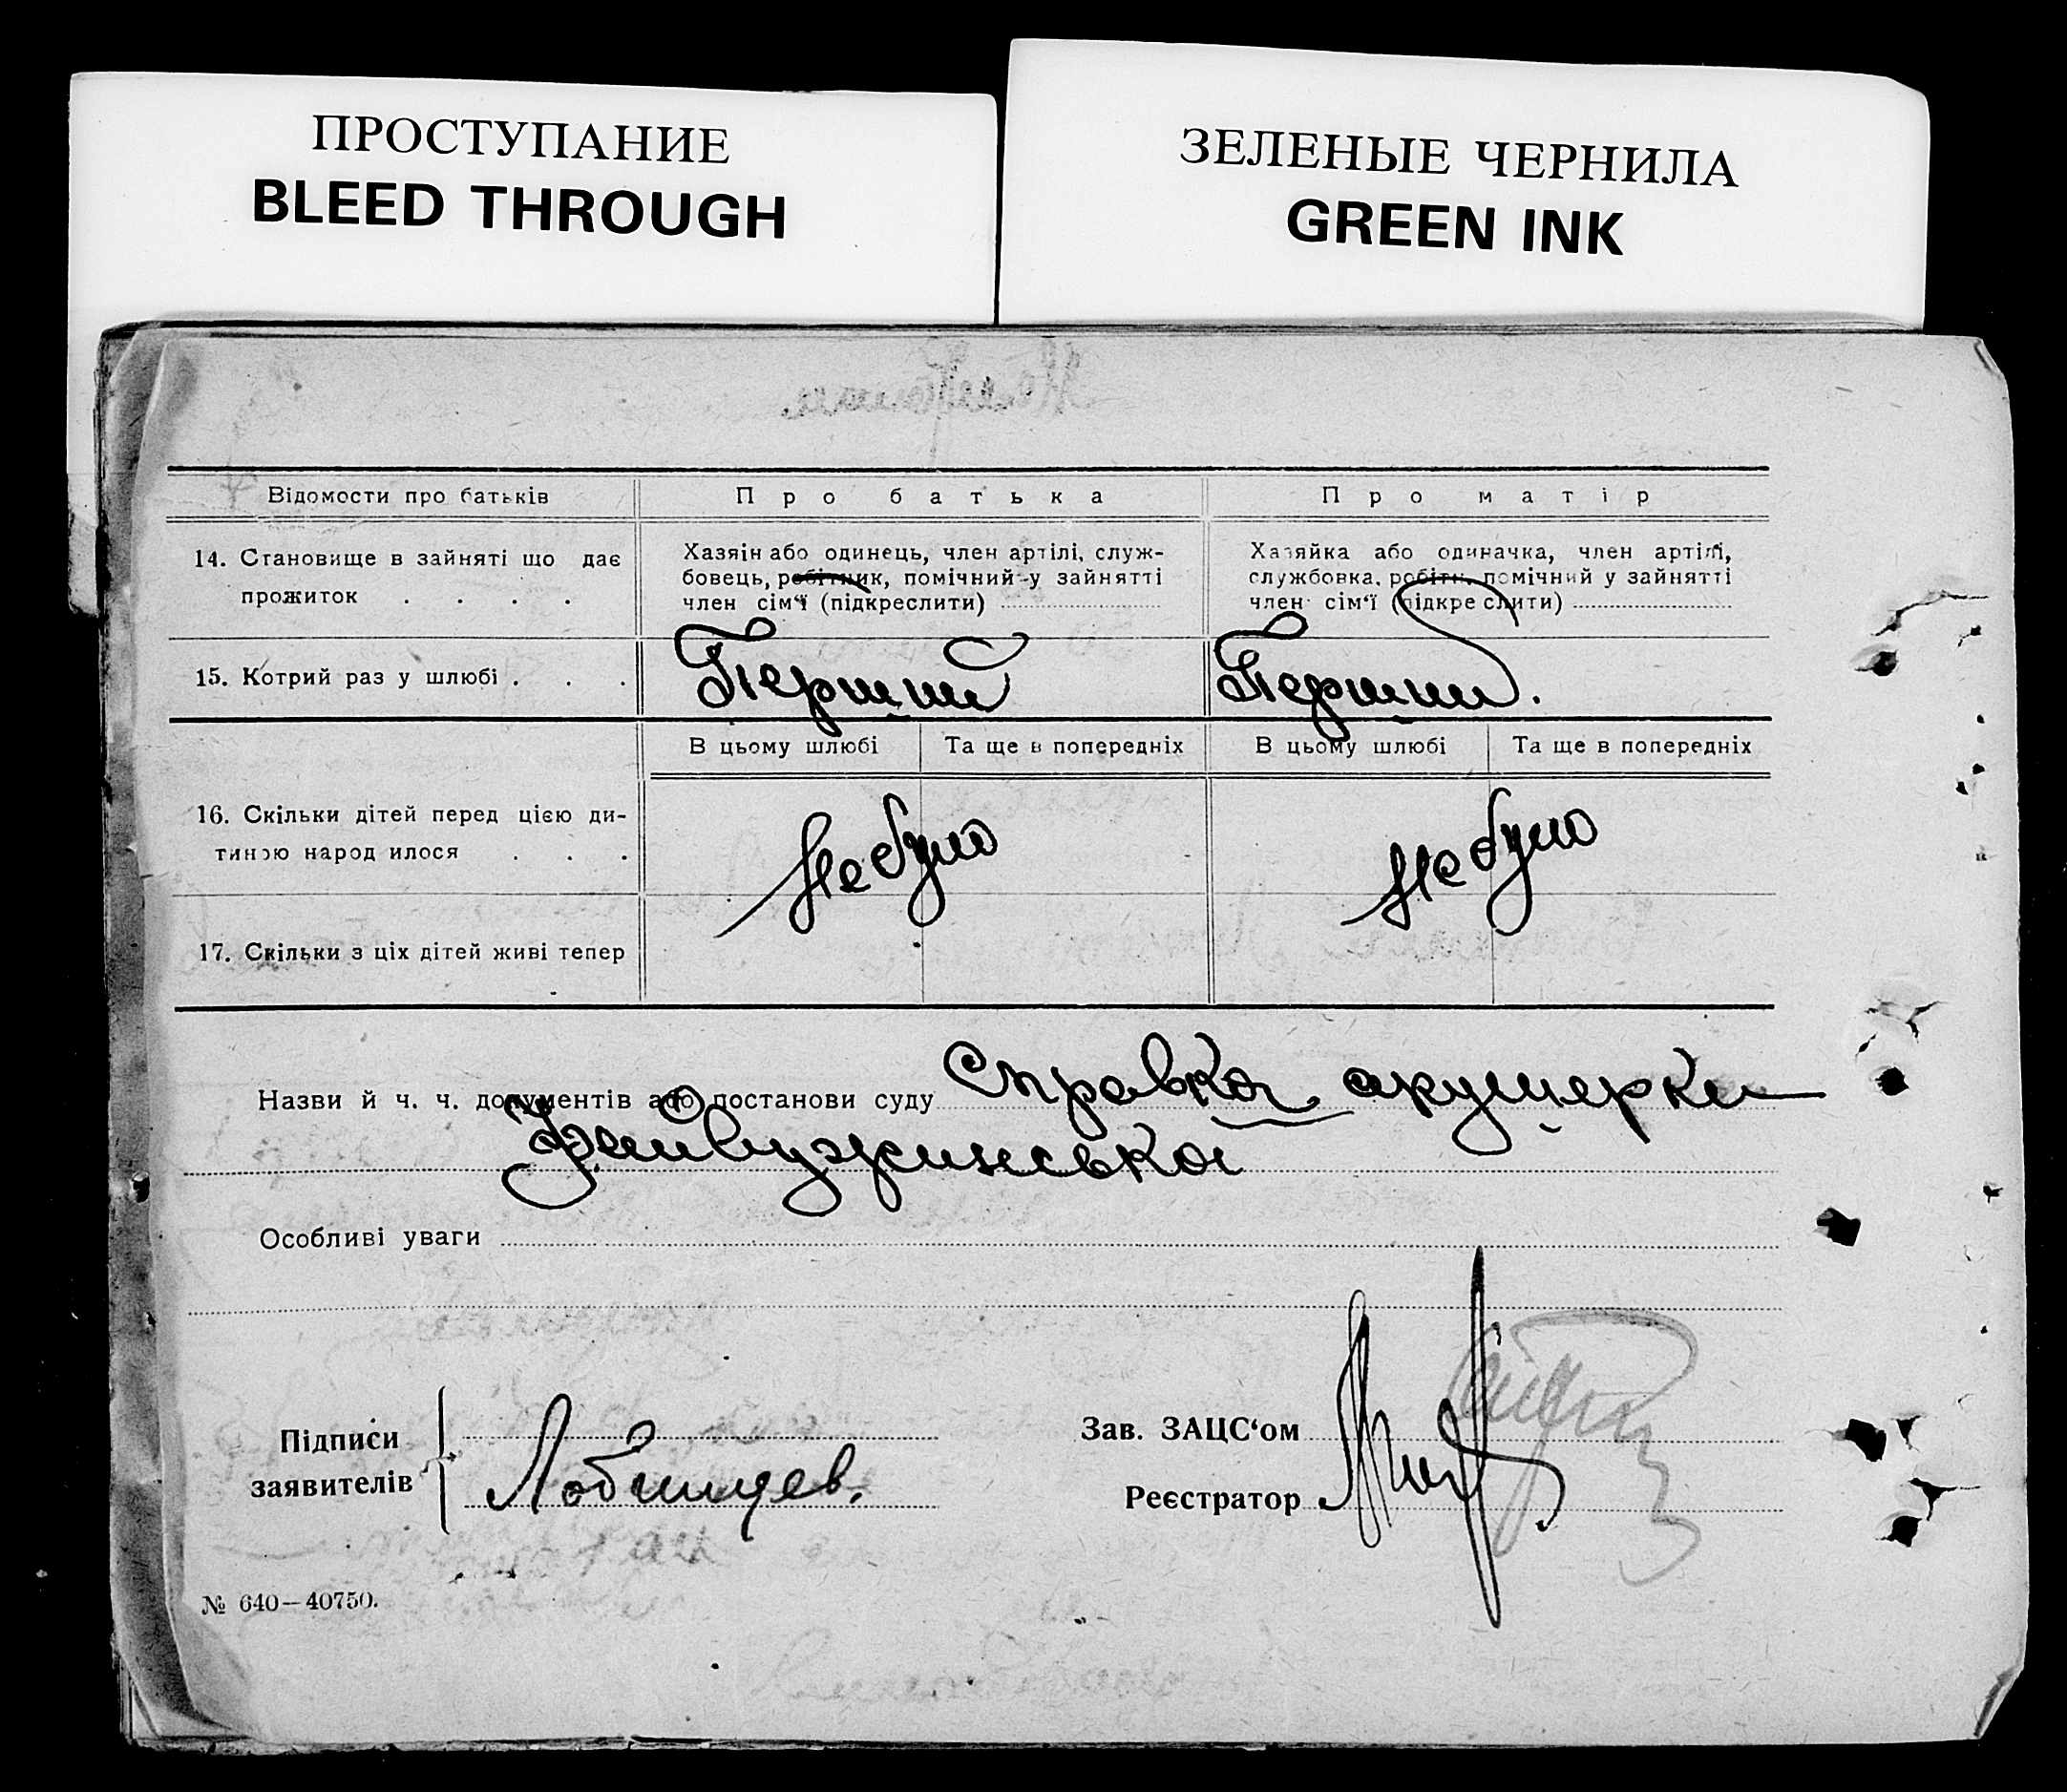 ПРОСТУПАНИЕ
BLEED THROUGH
ЗЕЛЕНЫЕ ЧЕРНИЛА
GREEN INK
Відомости про батьків
Про батька
Про матір
14. Становище в зайняті що дає
прожиток . . . .
Хазяін або одинець, член артілі, служ-
бовець, робітник, помічний у зайнятті
член сім'ї (підкреслити)
Хазяйка або одиначка, член артілі,
службовка, робітн. помічний у зайнятті
член сім'ї (підкреслити)
15. Котрий раз у шлюбі . . .
Перший
Перший.
В цьому шлюбі
Та ще в попередніх
В цьому шлюбі
Та ще в попередніх
16. Скільки дітей перед цією ди-
тиною народилося . . .
Не було
Не було
17. Скільки з ціх дітей живі тепер
Назви й ч. ч. документів або постанови суду Справка акушерки
Особливі уваги
Підписи
заявителів
Зав. ЗАЦС'ом
Реєстратор
№ 640—40750.